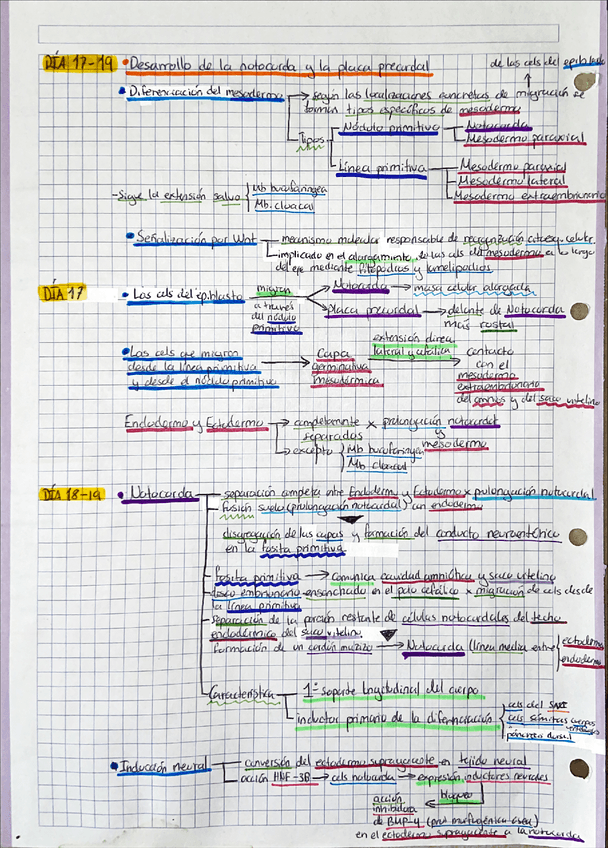 DÍA 17-19 • Desarrollo de la notocorda y la placa precordal
de las cels del epiblasto
• Diferenciación del mesodermo → según las localizaciones concretas de migración se
forman tipos específicos de mesodermo
Tipos
Nódulo primitivo
Notocorda
Mesodermo paraxial
Línea primitiva
Mesodermo paraxial
Mesodermo lateral
Mesodermo extraembrionario
- Sigue la extensión salvo
Mb bucofaríngea
Mb. cloacal
• Señalización por Wnt
mecanismo molecular responsable de reorganización citoesq. celular
implicado en el alargamiento de las cels del mesodermo a lo largo
del eje mediante filopodios y lamelipodios
DÍA 17 • Las cels del epiblasto
migran
a través
del nódulo
primitivo
Notocorda → masa celular alargada
placa precordal → delante de Notocorda
más rostal
• Las cels que migran
desde la línea primitiva
y desde el nódulo primitivo
→ Capa
germinativa
mesodérmica
extensión direc.
lateral y cefálica
contacto
con el
mesodermo
extraembrionario
del amnios y del saco vitelino
Endodermo y Ectodermo
completamnte
separados
x prolongación notocordal
y
mesodermo
excepto
Mb bucofaringea
Mb cloacal
DÍA 18-19 • Notocorda
separación completa entre Endodermo y Ectodermo x prolongación notocordal
fusión suelo (prolongación notocordal) con endodermo
disgregación de las capas y formación del conducto neuroentérico
en la fosita primitiva
fosita primitiva → comunica cavidad amniótica y saco vitelino
disco embrionario ensanchado en el polo cefálico x migración de cels desde
la línea primitiva
separación de la porción restante de células notocordales del techo
endodérmico del saco vitelino
Formación de un cordón macizo → Notocorda (línea media entre
ectodermo
endodermo
Característica
1er soporte longitudinal del cuerpo
inductor primario de la diferenciación
cels somíticas cuerpos
vertebrales
• Inducción neural
conversión del ectodermo suprayacente en tejido neural
acción HNF-3B → cels notocorda → expresión inductores neurales
bloqueo
acción
inhibidora
de BMP-4 (prot morfogénica ósea)
en el ectodermo suprayacente a la notocorda